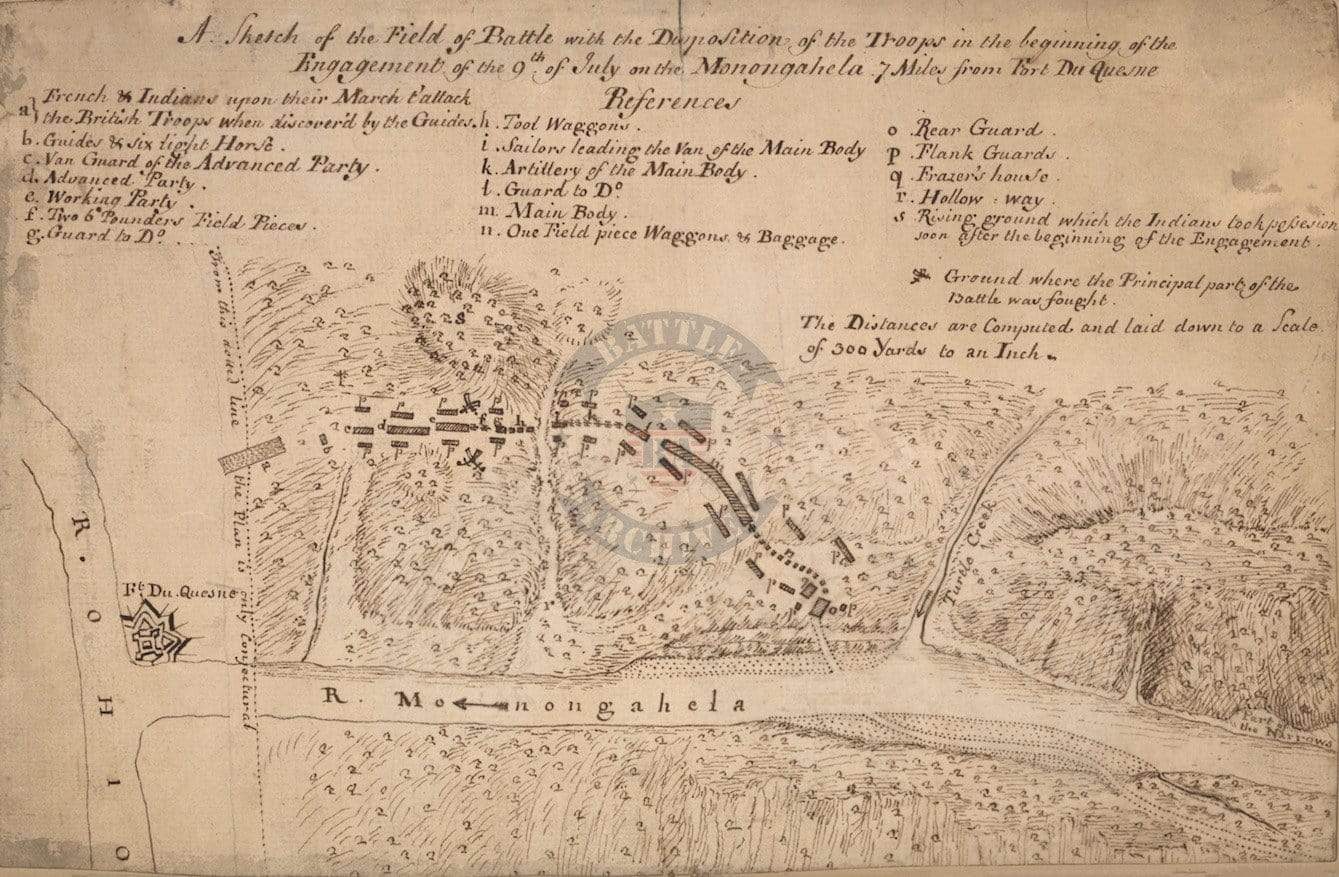 A Sketch of the Field of Battle with the Disposition of the Troops in the beginning of the
Engagement of the 9th of July on the Monongahela 7 Miles from Fort Du Quesne
References
a} French & Indians upon their March t'attack
the British Troops when discover'd by the Guides.
b. Guides & six light Horse.
c. Van Guard of the Advanced Party.
d. Advanced Party.
e. Working Party.
f. Two 6 Pounders Field Pieces.
g. Guard to Do.
h. Tool Waggons.
i. Sailors leading the Van of the Main Body
k. Artillery of the Main Body.
l. Guard to Do
m. Main Body.
n. One Field piece Waggons & Baggage.
o. Rear Guard.
p. Flank Guards.
q. Frazer's house.
r. Hollow way.
s Rising ground which the Indians took possesion
soon after the beginning of the Engagement.
Ground where the Principal part of the
Battle was fought.
The Distances are Computed and laid down to a Scale
of 300 Yards to an Inch.
From this dotted line the Plan is only Conjectural
BATTLE
ARCHIVES
R. OHIO
Ft. Du Quesne
R. Monongahela
Turtle Creek
Part of
the Narrows